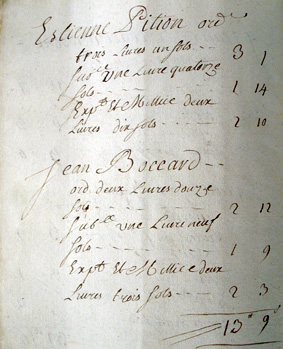 Estienne Pition ord^e
trois Livres un solo - - - 3 1
sub^ce Une Livre quatorze
solo - - - - 1 14
Exp^t Et Millice deux
Livres dix solo - - - - 2 10
Jean Boccard - -
ord. deux Livres douze
sols - - - - 2 12
sub^ce Une Livre neuf
solo - - - - 1 9
Exp^t Et Millice deux
Livres trois solo - - - 2 3
13^# 9^s